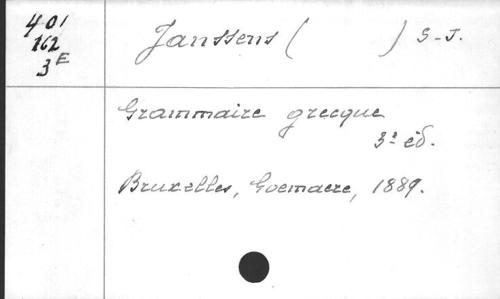 401
162
3E
Janssens (          ) S-J.
Grammaire grecque
3e éd.
Bruxelles, Goemaere, 1889.